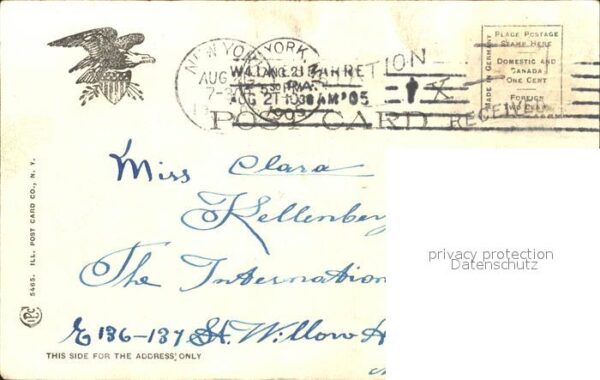 NEW YORK, N.Y.
AUG
STATION
AUG 21 10 30 AM '05
1905
RECEIVED
POST CARD
PLACE POSTAGE
STAMP HERE
DOMESTIC AND
CANADA
ONE CENT
FOREIGN
TWO CENTS
MADE IN GERMANY
Miss Clara
Kellenber
The Internation
E 136-137 St. Willow A
5465. ILL. POST CARD CO., N. Y.
THIS SIDE FOR THE ADDRESS ONLY
privacy protection
Datenschutz